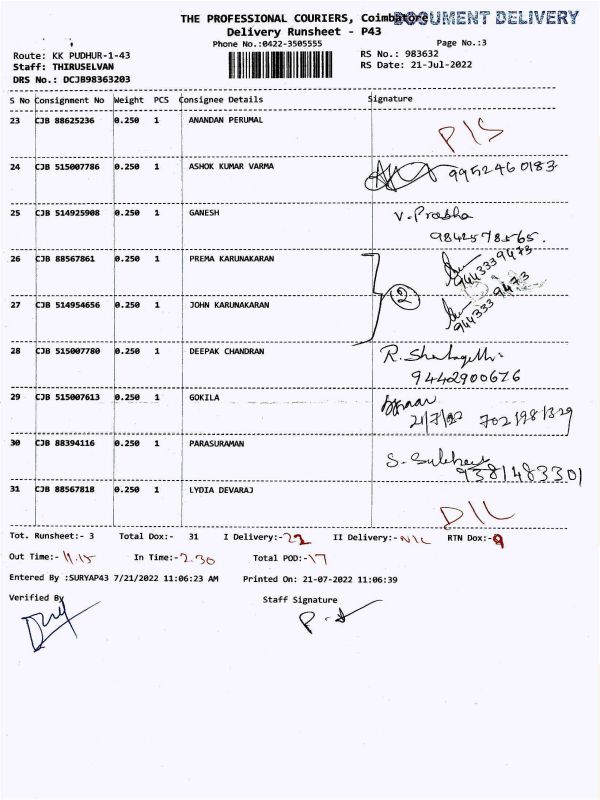 THE PROFESSIONAL COURIERS, Coimbatore
DOCUMENT DELIVERY
Delivery Runsheet - P43
Phone No.:0422-3505555
Page No.:3
Route: KK PUDHUR-1-43
RS No.: 983632
Staff: THIRUSELVAN
RS Date: 21-Jul-2022
DRS No.: DCJB98363203
S No Consignment No Weight PCS Consignee Details Signature
23 CJB 88625236 0.250 1 ANANDAN PERUMAL
P/S
24 CJB 515007786 0.250 1 ASHOK KUMAR VARMA 9952460183
25 CJB 514925908 0.250 1 GANESH V. Prabha
9842578565.
26 CJB 88567861 0.250 1 PREMA KARUNAKARAN 9443339473
2
27 CJB 514954656 0.250 1 JOHN KARUNAKARAN 9443339473
28 CJB 515007780 0.250 1 DEEPAK CHANDRAN
9442900676
29 CJB 515007613 0.250 1 GOKILA
21/7/22 7021981329
30 CJB 88394116 0.250 1 PARASURAMAN
9381483301
31 CJB 88567818 0.250 1 LYDIA DEVARAJ
D/L
Tot. Runsheet:- 3 Total Dox:- 31 I Delivery:- 22 II Delivery:- NIL RTN Dox:- 9
Out Time:- 11.15 In Time:- 2.30 Total POD:- 17
Entered By :SURYAP43 7/21/2022 11:06:23 AM Printed On: 21-07-2022 11:06:39
Verified By Staff Signature